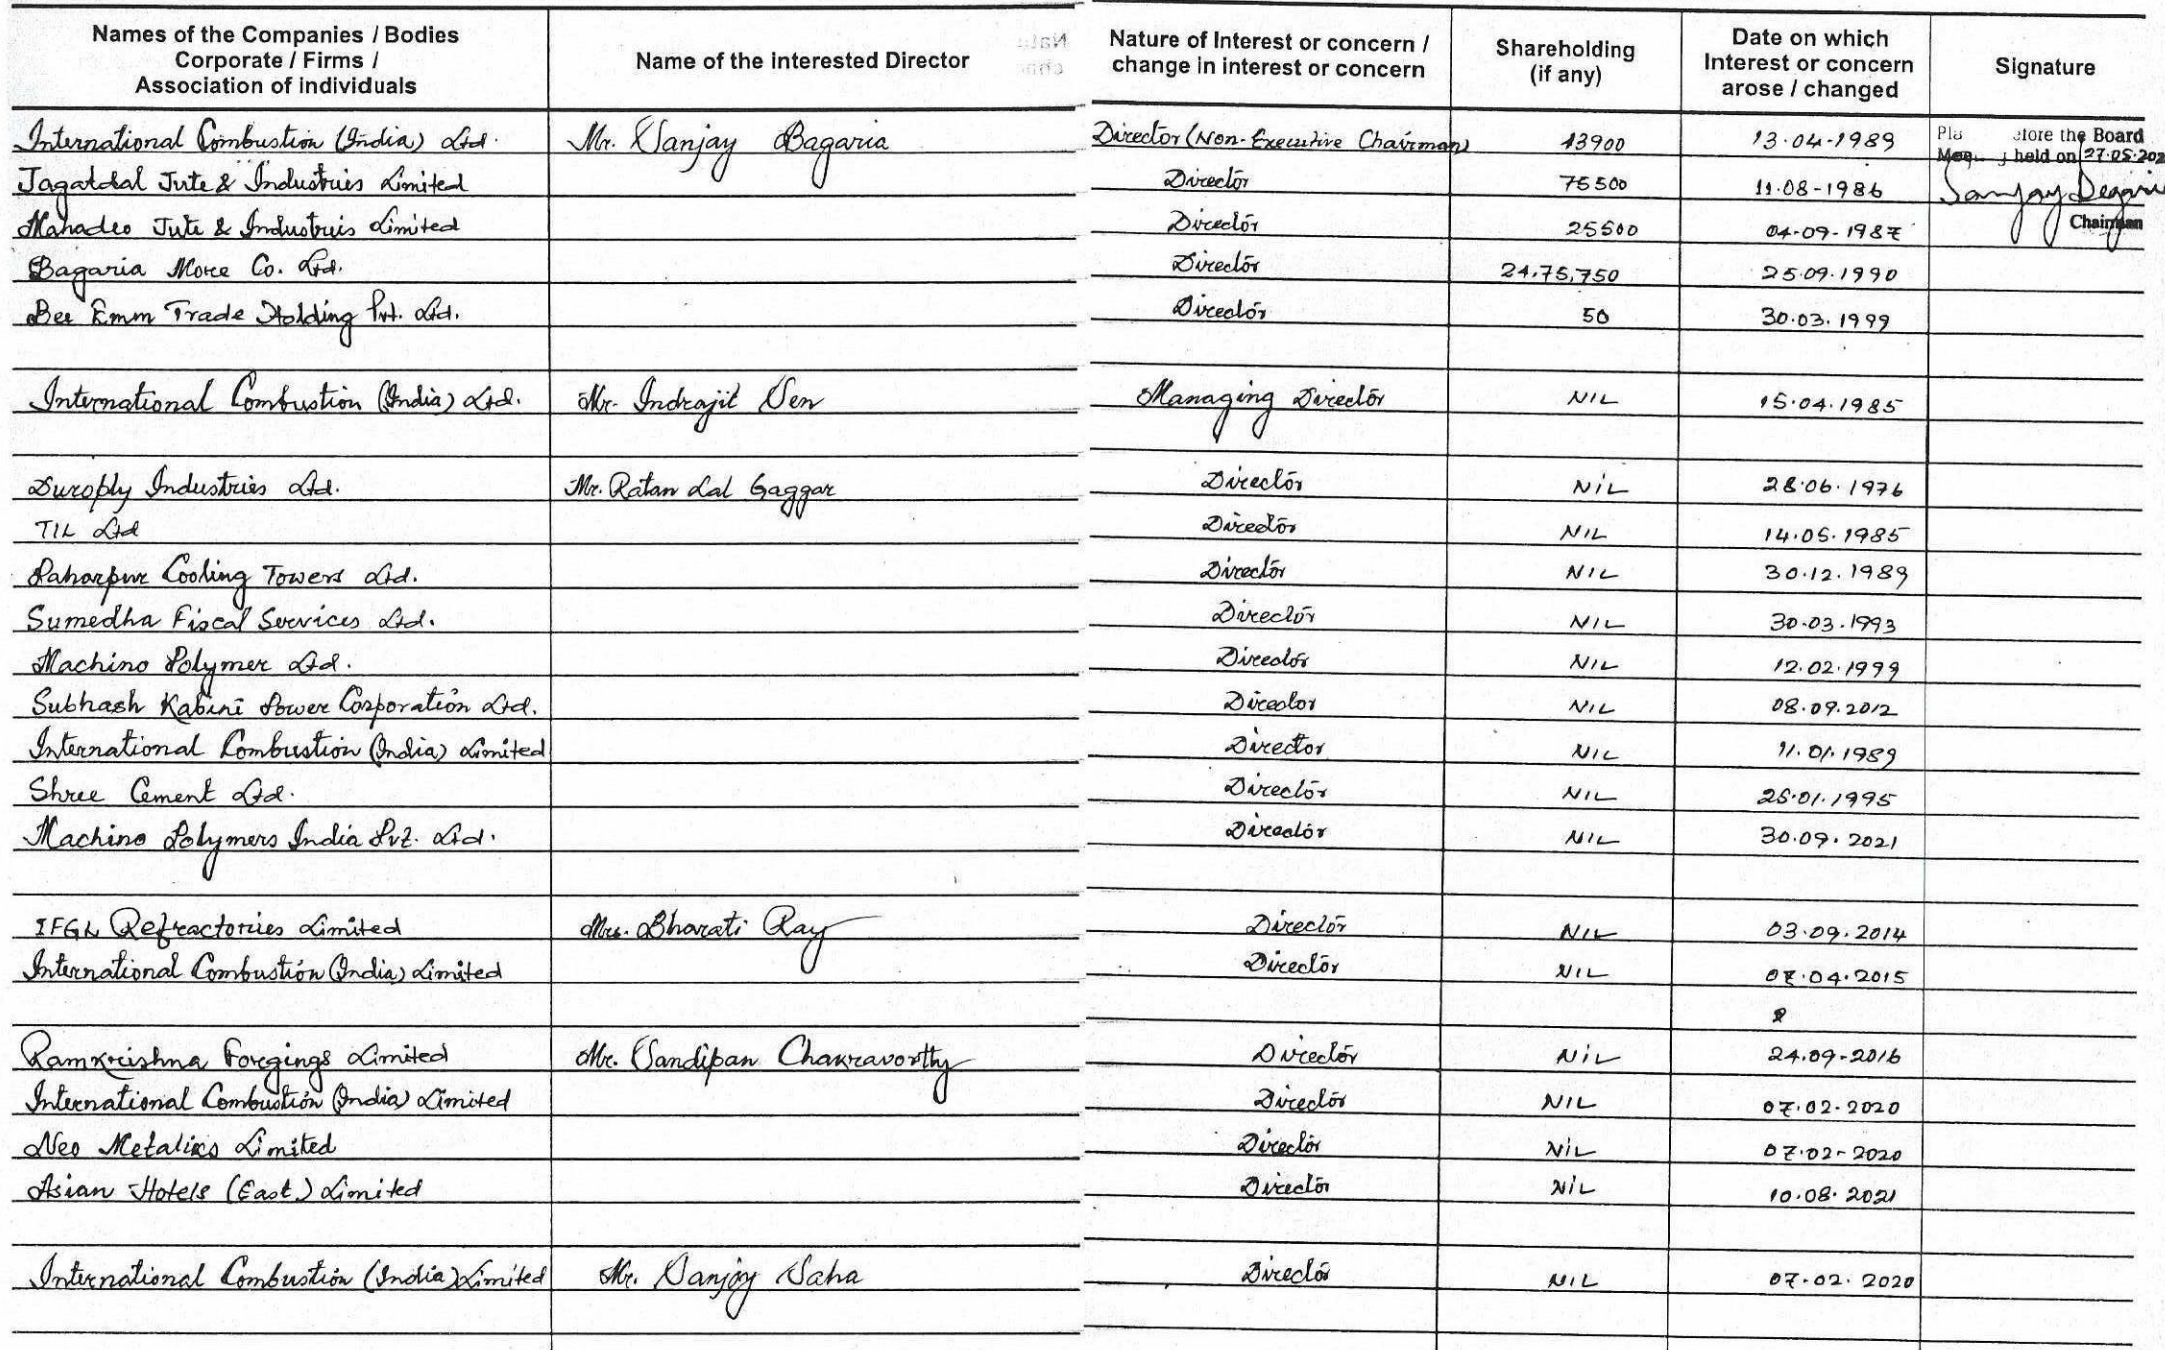 Names of the Companies / Bodies Corporate / Firms / Association of individuals Name of the interested Director Nature of Interest or concern / change in interest or concern Shareholding (if any) Date on which Interest or concern arose / changed Signature
International Combustion (India) Ltd. Mr. Sanjay Bagaria Director (Non-Executive Chairman) 13900 13.04-1989 the Board held on 27.05.202
Jagatdal Jute & Industries Limited Director 75500 11.08-1986 Sanjay
Mahadeo Jute & Industries Limited Director 25500 04-09-1987 Chairman
Bagaria More Co. Ltd. Director 24,75,750 25.09.1990
Bee Emm Trade Holding Pvt. Ltd. Director 50 30.03.1999
International Combustion (India) Ltd. Mr. Indrajit Sen Managing Director NIL 15.04.1985
Duroply Industries Ltd. Mr. Ratan Lal Gaggar Director NIL 28.06.1976
TIL Ltd Director NIL 14.05.1985
Paharpur Cooling Towers Ltd. Director NIL 30.12.1989
Sumedha Fiscal Services Ltd. Director NIL 30.03.1993
Machino Polymer Ltd. Director NIL 12.02.1999
Subhash Kabini Power Corporation Ltd. Director NIL 08.09.2012
International Combustion (India) Limited Director NIL 11.01.1989
Shree Cement Ltd. Director NIL 25.01.1995
Machino Polymers India Pvt. Ltd. Director NIL 30.09.2021
IFGL Refractories Limited Mrs. Bharati Ray Director NIL 03.09.2014
International Combustion (India) Limited Director NIL 07.04.2015
Ramkrishna Forgings Limited Mr. Sandipan Chakravortty Director NIL 24.09-2016
International Combustion (India) Limited Director NIL 07.02.2020
Neo Metaliks Limited Director NIL 07.02-2020
Asian Hotels (East) Limited Director NIL 10.08.2021
International Combustion (India) Limited Mr. Sanjoy Saha Director NIL 07.02.2020